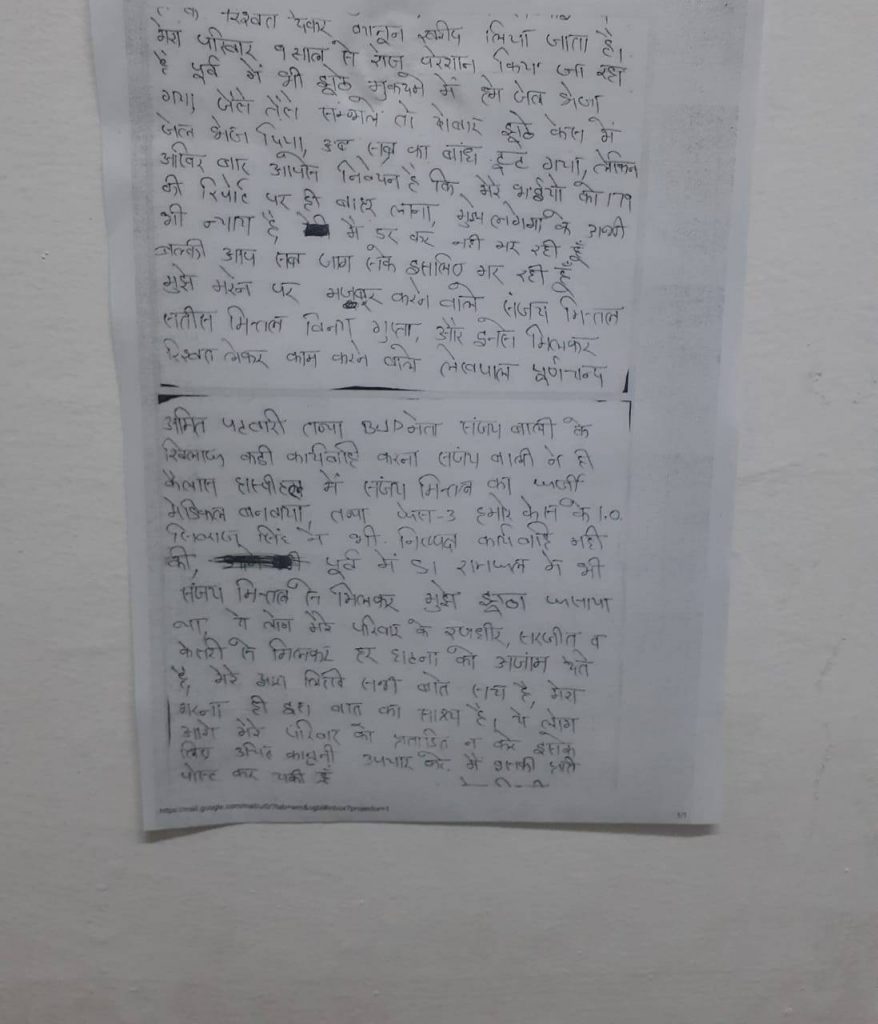 रिश्वत देकर कानून खरीद लिया जाता है।
मेरा परिवार 9 साल से रोज परेशान किया जा रहा
है पूर्व में भी झूठे मुकदमे में हमे जेल भेजा
गया, जैसे तैसे सम्भले तो दोबारा झूठे केस में
जेल भेज दिया, अब सब्र का बांध टूट गया, लेकिन
आखिर बार आपसे निवेदन है कि, मेरे भाईयो को 179
की रिपोर्ट पर ही बाहर लाना, मुझे लगेगा के अभी
भी न्याय है, मै डर कर नही मर रही हूँ
बल्की आप सब जाग सके इसलिए मर रही हूँ
मुझे मरने पर मजबूर करने वाले संजय मित्तल
सतीस मित्तल विनय गुप्ता, और इनसे मिलकर
रिश्वत लेकर काम करने वाले लेखपाल पूर्णचन्द
अमित पटवारी तथा BJP नेता संजय बाली के
खिलाफ कडी कार्यवाहि करना संजय बाली ने ही
कैलाश हास्पीटल में संजय मित्तल का फर्जी
मेडिकल बनवाया, तथा फेस-3 हमारे केस के I.O.
सिंह ने भी निष्पक्ष कार्यवाहि नही
की, पूर्व में SI रामफल ने भी
संजय मित्तल से मिलकर मुझे झूठा फसाया
था, ये लोग मेरे परिवार के रणधीर, सरजीत व
केसरी से मिलकर हर घटना को अजांम देते
है, मेरे द्वारा लिखि सभी बाते सच है, मेरा
मरना ही इस बात का साक्ष्य है। ये लोग
आगे मेरे परिवार को प्रताडित न करे इसके
लिए उचित कानूनी उपचार करे. मै इसकी प्रति
पोस्ट कर चुकी हूँ
1/1